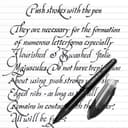 Push strokes with the pen
They are necessary for the formation
of numerous letterforms especially
Flourished & Swashed Italic
Majuscules. Do not have
about using push strokes
edged nibs - as long as
Remains in contact with the
all will